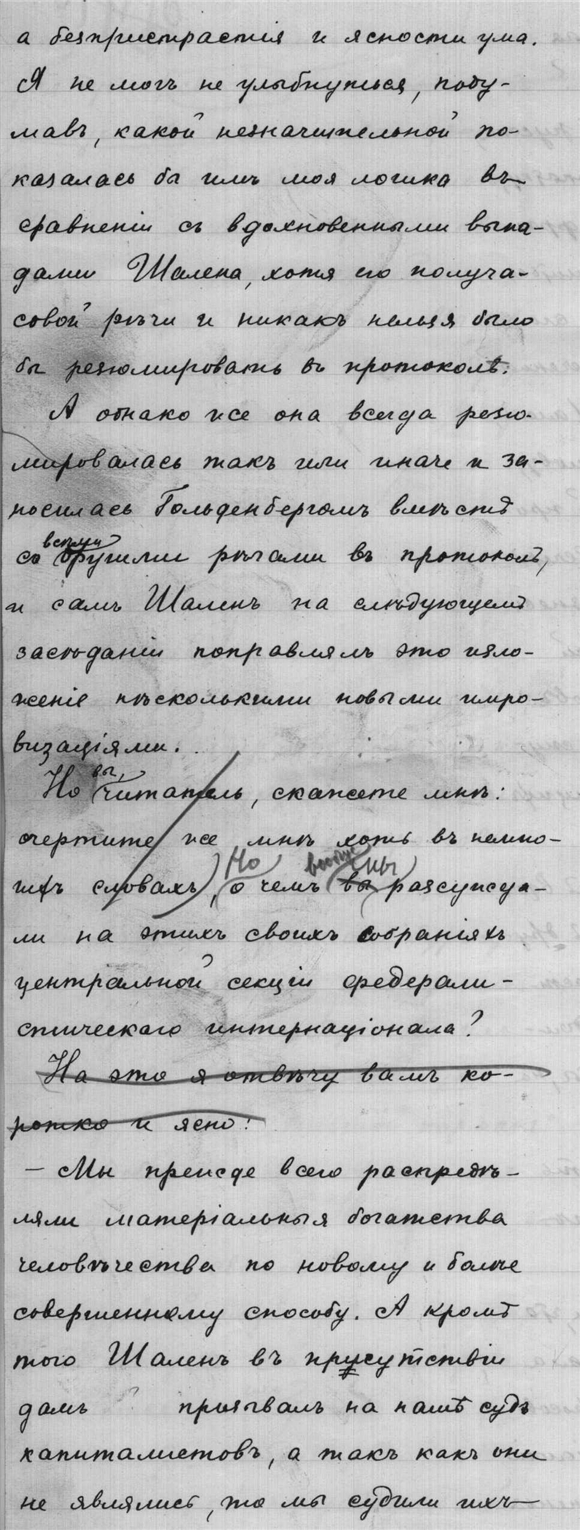 а безпристрастія и ясности ума.
Я не могъ не улыбнуться, поду-
мавъ, какой незначительной по-
казалась бы имъ моя логика въ
сравненіи съ вдохновенными выпа-
дами Шалена, хотя его получа-
совой рѣчи и никакъ нельзя было
бы резюмировать въ протоколѣ.
А однако же она всегда резю-
мировалась такъ или иначе и за-
носилась Гольденбергомъ вмѣстѣ
со всѣми другими рѣчами въ протоколъ,
и самъ Шаленъ на слѣдующемъ
засѣданіи поправлялъ это изло-
женіе нѣсколькими новыми импро-
визаціями.
Но вы, читатель, скажете мнѣ:
очертите же мнѣ хоть въ немно-
гихъ словахъ, Но о чемъ вообще мы вы разсужда-
ли на этихъ своихъ собраніяхъ
центральной секціи федерали-
стическаго интернаціонала?
На это я отвѣчу вамъ ко-
ротко и ясно:
— Мы прежде всего распредѣ-
ляли матеріальныя богатства
человѣчества по новому и болѣе
совершенному способу. А кромѣ
того Шаленъ въ присутствіи
дамъ призывалъ на нашъ судъ
капиталистовъ, а такъ какъ они
не являлись, то мы судили ихъ